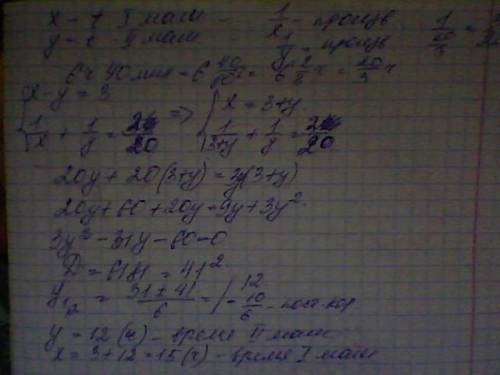 x - ч I маш - 1/x - произв 1/(20/3) = 3/20
y - ч II маш 1/y = произв
6ч 40мин = 6 40/60 = 6 2/3 = 20/3 ч
{x - y = 3
{1/x + 1/y = 3/20 => {x = 3+y
{1/(3+y) + 1/y = 3/20
20y + 20(3+y) = 3y(3+y)
20y + 60 + 20y = 9y + 3y²
3y² - 31y - 60 = 0
D = 1681 = 41²
y₁,₂ = (31 ± 41)/6 = 12
- 10/6 - пост. кор
y = 12 (ч) - время II маш
x = 3 + 12 = 15 (ч) - время I маш